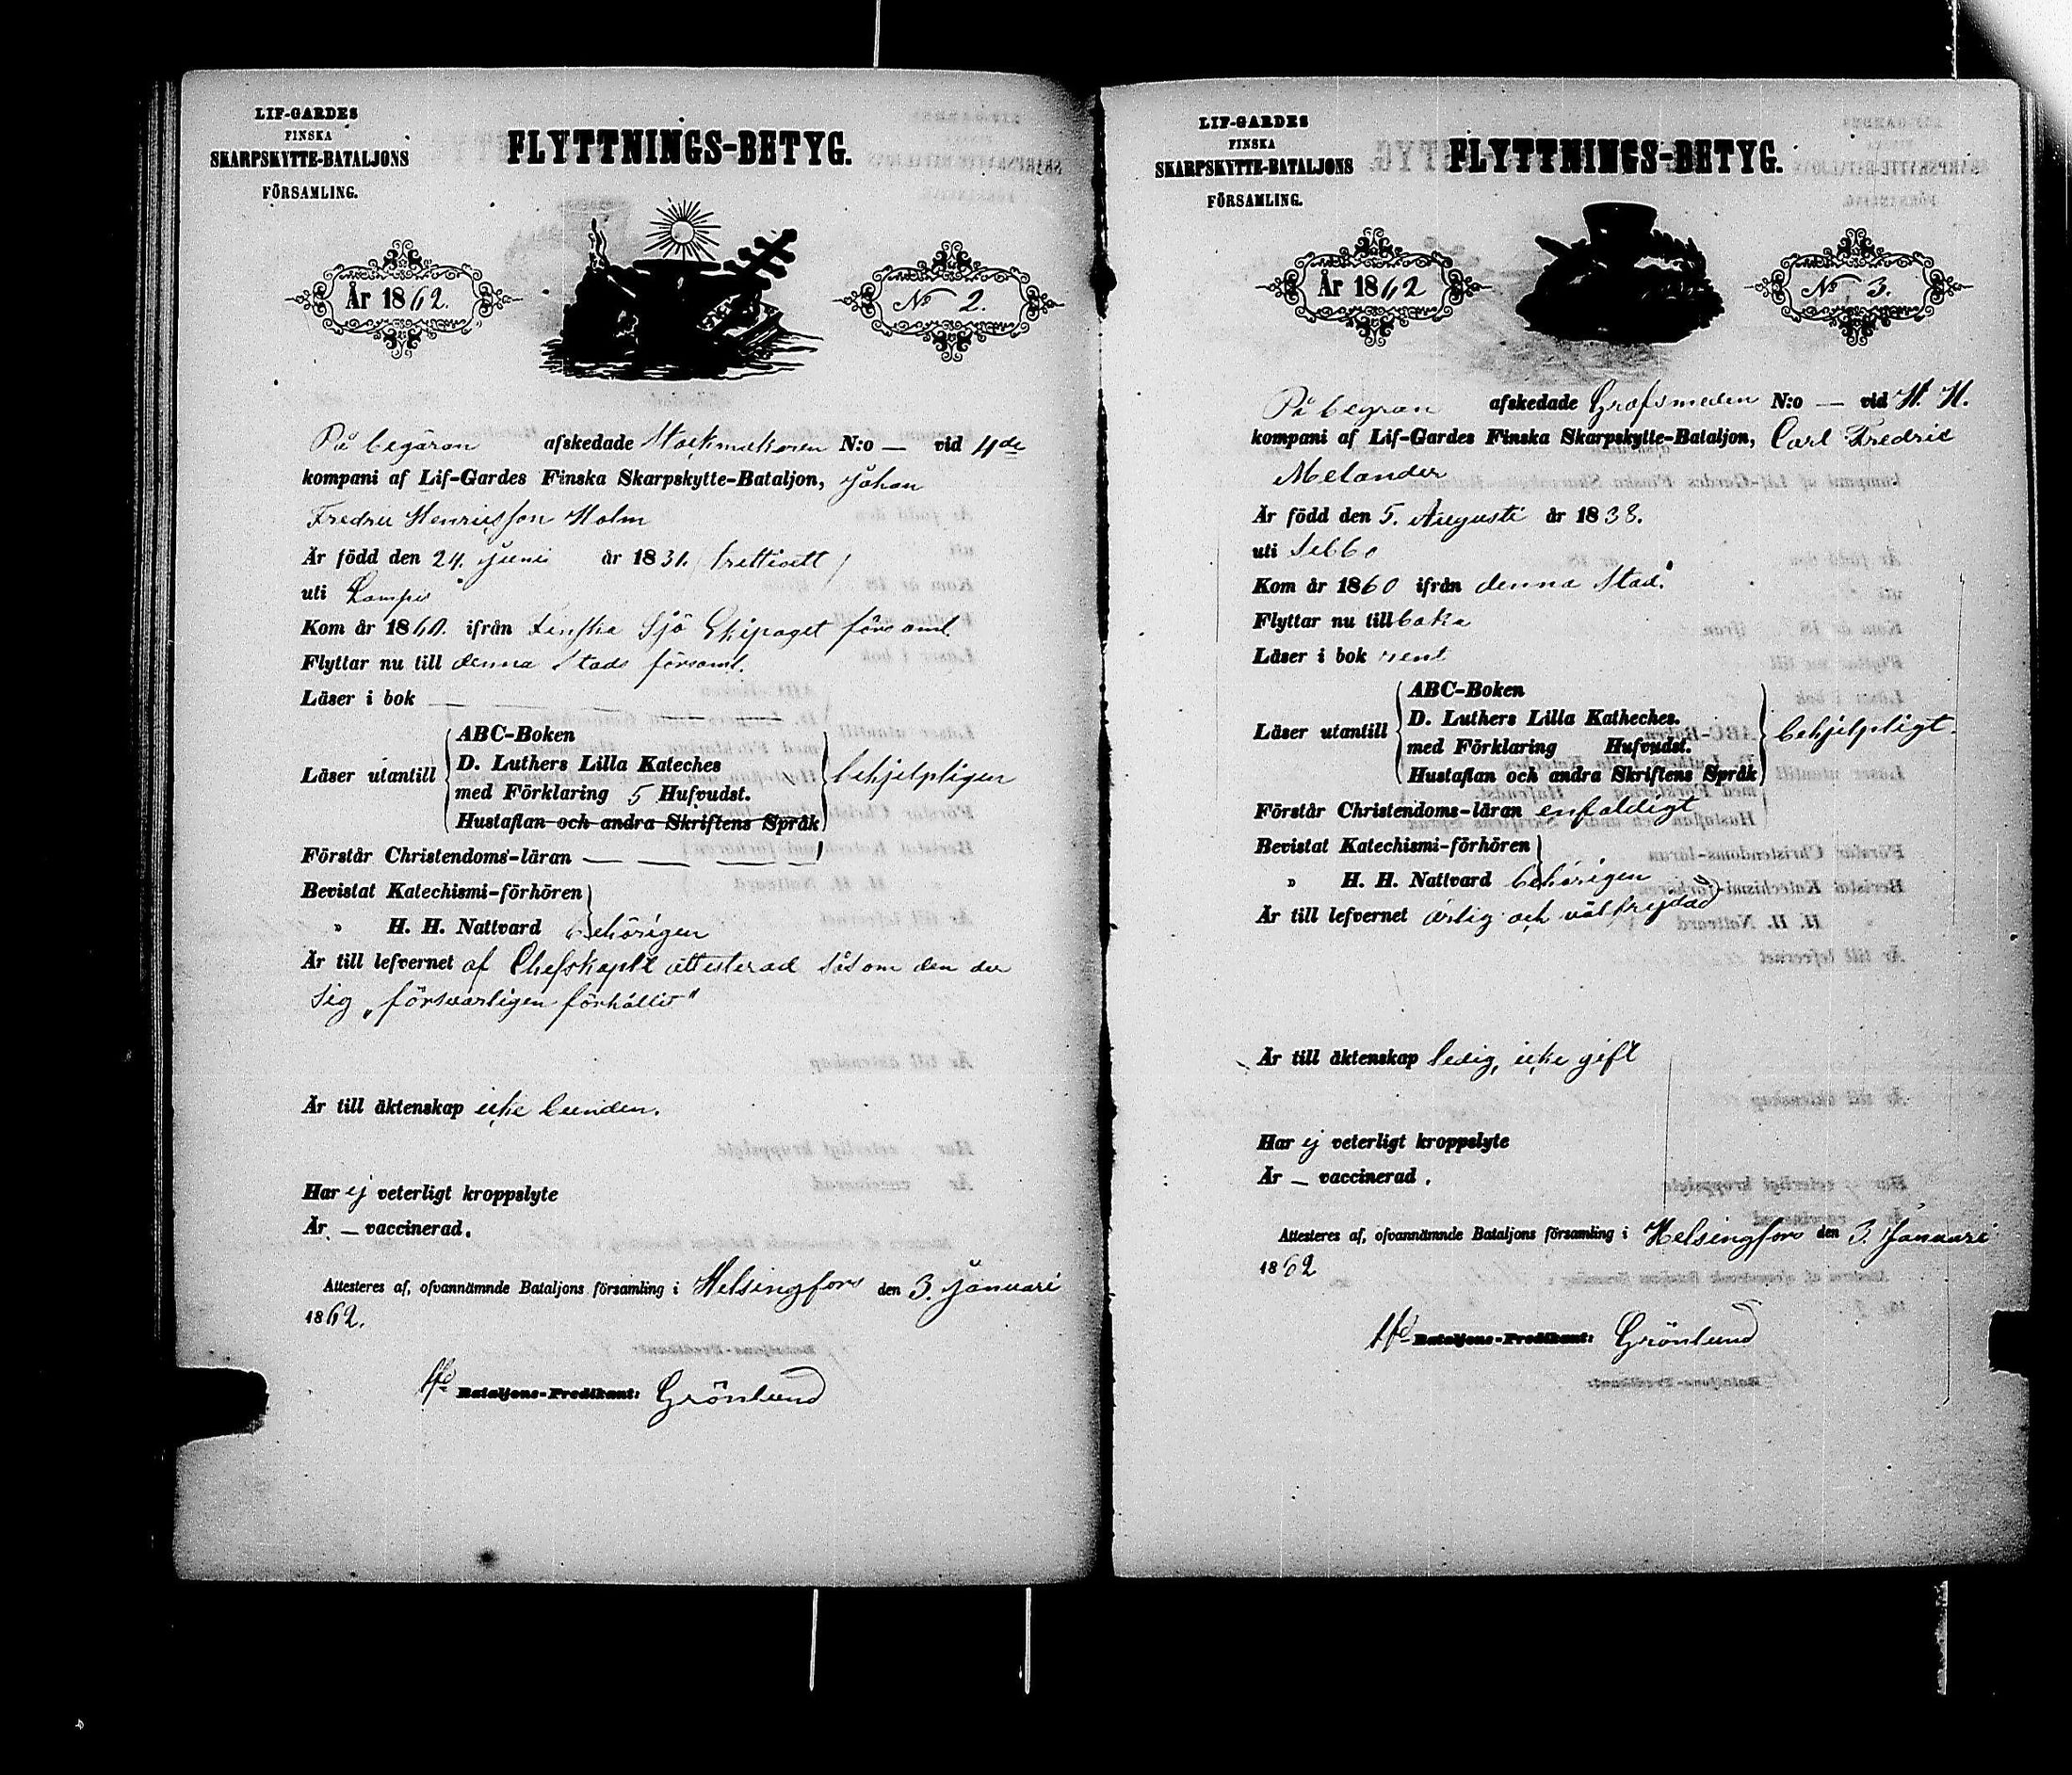 LIF-GARDES
FINSKA
SKARPSKYTTE-BATALJONS
FÖRSAMLING.
FLYTTNINGS-BETYG.
År 1862.
No 2.
På begäran afskedade Stockmakaren N:o — vid 4de
kompani af Lif-Gardes Finska Skarpskytte-Bataljon, Johan
Fredric Henricsson Holm
Är född den 24. Juni år 1831. (trettioett)
uti Lampis
Kom år 1860. ifrån Finska Sjö Ekipaget församl.
Flyttar nu till denna Stads församl.
Läser i bok — — — — —
Läser utantill
ABC-Boken
D. Luthers Lilla Kateches
med Förklaring 5 Hufvudst.
Hustaflan och andra Skriftens Språk
behjelpligen
Förstår Christendoms-läran — — — —
Bevistat Katechismi-förhören
» H. H. Nattvard behörigen
Är till lefvernet af Chefskapet attesterad såsom den der
sig „försvarligen förhållit"
Är till äktenskap icke bunden.
Har ej veterligt kroppslyte
Är — vaccinerad.
Attesteres af, ofvannämnde Bataljons församling i Helsingfors den 3. Januari
1862.
Bataljons-Predikant: Grönlund
LIF-GARDES
FINSKA
SKARPSKYTTE-BATALJONS
FÖRSAMLING.
FLYTTNINGS-BETYG.
År 1862
No 3.
På begäran afskedade Grofsmeden N:o — vid H. H.
kompani af Lif-Gardes Finska Skarpskytte-Bataljon, Carl Fredric
Melander
Är född den 5. Augusti år 1838.
uti Sibbo
Kom år 1860 ifrån denna Stad.
Flyttar nu tillbaka
Läser i bok rent
Läser utantill
ABC-Boken
D. Luthers Lilla Katheches.
med Förklaring Hufvudst.
Hustaflan och andra Skriftens Språk
behjelpligt.
Förstår Christendoms-läran enfaldigt
Bevistat Katechismi-förhören
» H. H. Nattvard behörigen
Är till lefvernet ärlig och välfrejdad
Är till äktenskap ledig, icke gift
Har ej veterligt kroppslyte
Är — vaccinerad.
Attesteres af, ofvannämnde Bataljons församling i Helsingfors den 3. Januari
1862
Bataljons-Predikant: Grönlund